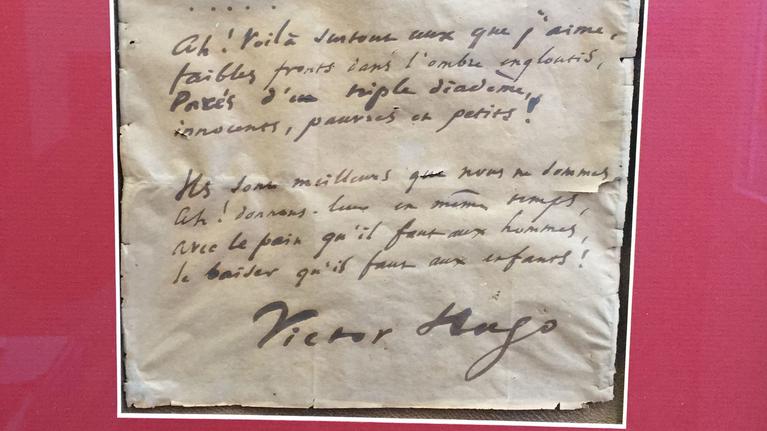 .....
Ah! Voilà surtout ceux que j'aime,
faibles fronts dans l'ombre engloutis,
Parés d'un triple diadème,
innocents, pauvres et petits!
Ils sont meilleurs que nous ne sommes
Ah! donnons-leur en même temps,
avec le pain qu'il faut aux hommes,
le baiser qu'il faut aux enfants!
Victor Hugo